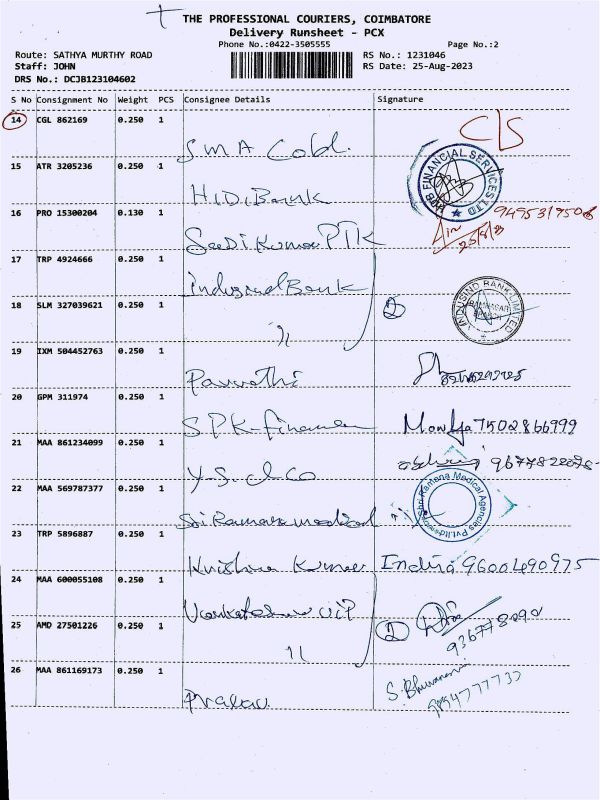 THE PROFESSIONAL COURIERS, COIMBATORE
Delivery Runsheet - PCX
Phone No.:0422-3505555
Page No.:2
Route: SATHYA MURTHY ROAD
RS No.: 1231046
Staff: JOHN
RS Date: 25-Aug-2023
DRS No.: DCJB123104602
S No Consignment No Weight PCS Consignee Details Signature
14 CGL 862169 0.250 1
SMA Gold. C/S
15 ATR 3205236 0.250 1
H.D.Bank
HDB FINANCIAL SERVICES LTD
16 PRO 15300204 0.130 1
25/8/23
17 TRP 4924666 0.250 1
Indusind Bank
18 SLM 327039621 0.250 1
11 2
INDUSIND BANK LIMITED
RAMNAGAR
BRANCH
19 IXM 504452763 0.250 1
Parvathi
20 GPM 311974 0.250 1
SPK-finance 7502866999
21 MAA 861234099 0.250 1
Y.S. & Co
22 MAA 569787377 0.250 1
Sri Ramana medical
Sri Ramana Medical Agencies Pvt.Ltd
23 TRP 5896887 0.250 1
Krishna Kumar Indira 9600490975
24 MAA 600055108 0.250 1
VIP
25 AMD 27501226 0.250 1
11 2
26 MAA 861169173 0.250 1
S. Bhuvaneswari